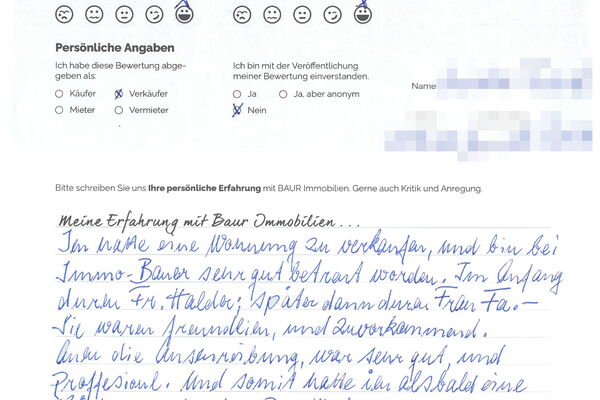 Persönliche Angaben
Ich habe diese Bewertung abge-
geben als:
Käufer Verkäufer
Mieter Vermieter
Ich bin mit der Veröffentlichung
meiner Bewertung einverstanden.
Ja Ja, aber anonym
Nein
Name
Bitte schreiben Sie uns Ihre persönliche Erfahrung mit BAUR Immobilien. Gerne auch Kritik und Anregung.
Meine Erfahrung mit Baur Immobilien ...
Ich hatte eine Wohnung zu verkaufen, und bin bei
Immo-Bauer sehr gut betraut worden. Im Anfang
durch Fr. Halder; später dann durch Frau Fa.-
Sie waren freundlich, und zuvorkommend.
Auch die Ausschreibung, war sehr gut, und
Proffesionl. Und somit hatte ich alsbald eine